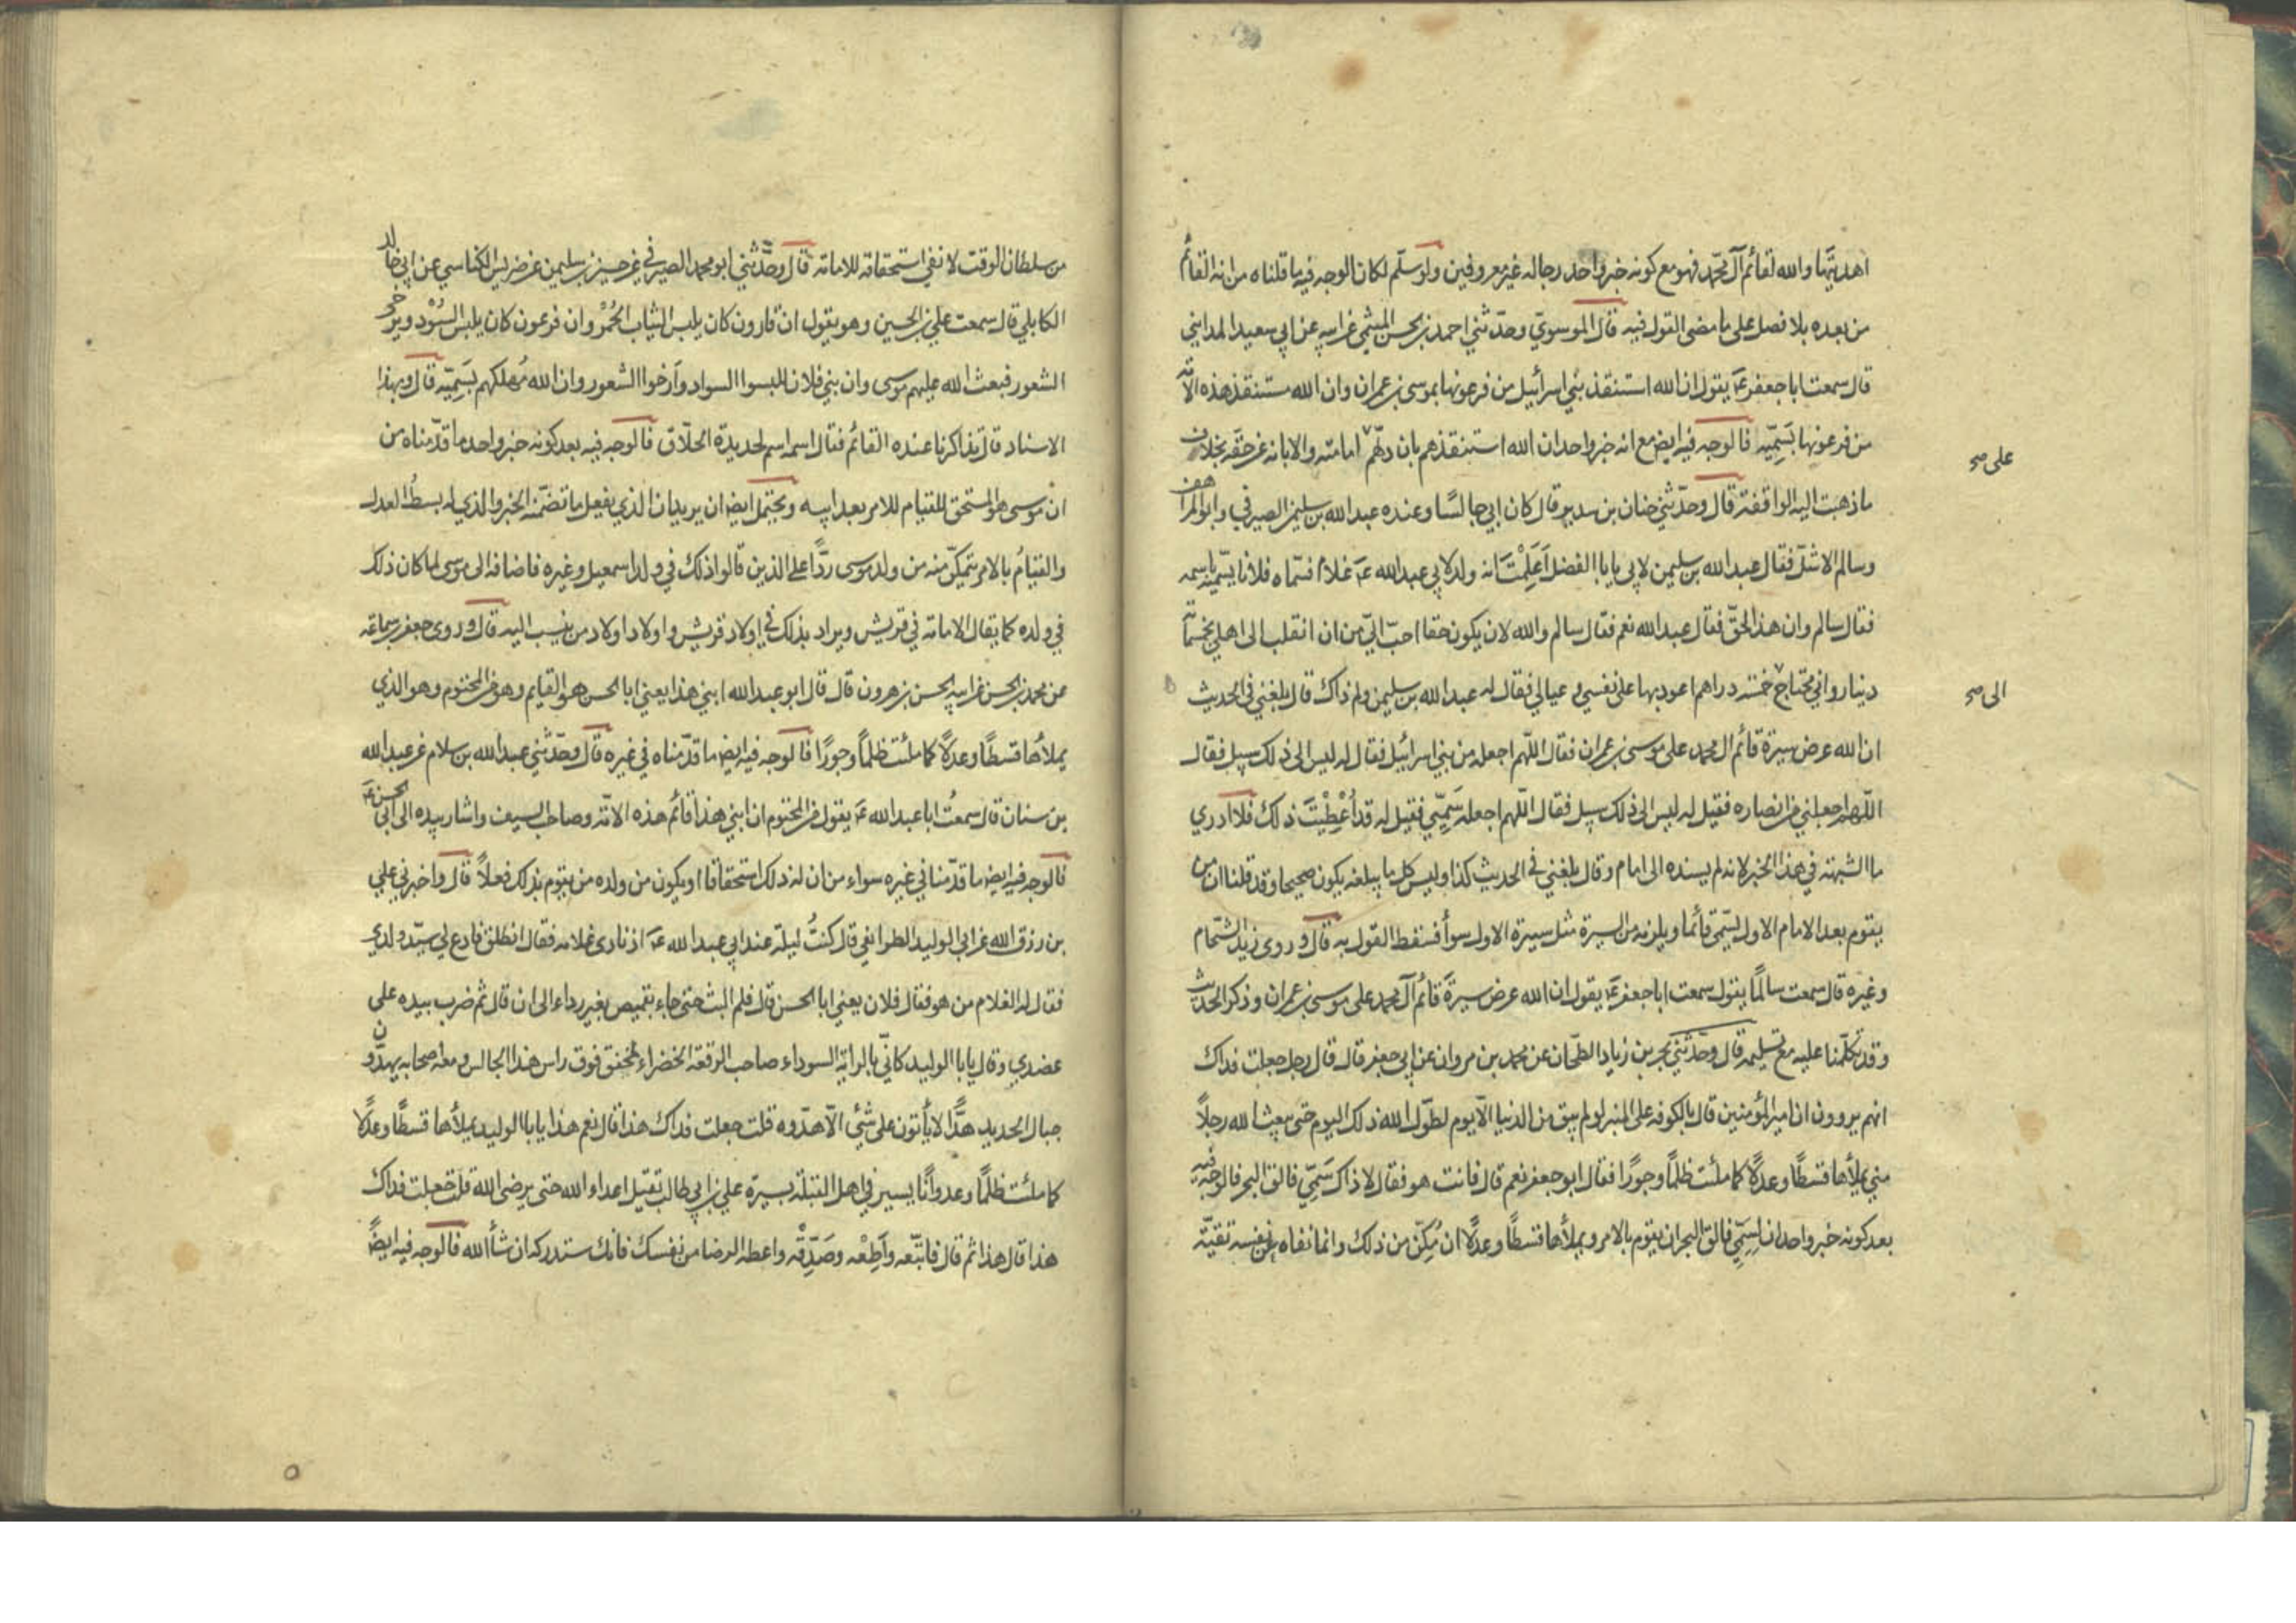 اهديتها والله لقائم آل محمد فهو مع كونه خبر واحد رجاله غير معروفين ولو سلّم لكان الوجه فيه ما قلناه من انه القائم
من بعده بلا فصل على ما مضى القول فيه قال الموسوي وحدّثني احمد بن الحسن الميثمي عن ابيه عن ابي سعيد المدايني
قال سمعت ابا جعفر ع يقول ان الله استنقذ بني اسرائيل من فرعونها بموسى بن عمران وان الله مستنقذ هذه الامّة
من فرعونها بسَمِيّه فالوجه فيه ايض مع انه خبر واحد ان الله استنقذهم بان دلّهم امامته والابانة عن حقّه بخلاف
على صح
ما ذهبت اليه الواقفة قال وحدّثني حنان بن سدير قال كان ابي جالسًا وعنده عبد الله بن سليمن الصيرفي وابو المراهف
وسالم الاشلّ فقال عبد الله بن سليمن لابي يا ابا الفضل اَعَلِمْتَ انه ولد لابي عبد الله ع غلام فسمّاه فلانا يسمّيه باسمه
فقال سالم وان هذا لحقّ فقال عبد الله نعم فقال سالم والله لان يكون حقا احبّ اليّ من ان انقلب الى اهلي بخمسمائة
دينار واني محتاج خمسة دراهم اعود بها على نفسي وعيالي فقال له عبد الله بن سليمن ولم ذاك قال بلغني في الحديث
الى صح
ان الله عرض سيرة قائم ال محمد على موسى بن عمران فقال اللّهم اجعله من بني اسرائيل فقال له ليس الى ذلك سبيل فقال
اللّهم اجعلني من انصاره فقيل له ليس الى ذلك سبيل فقال اللّهم اجعله سَمِيّي فقيل له قد اُعْطِيْتَ ذلك فلا ادري
ما الشبهة في هذا الخبر لانه لم يسنده الى امام وقال بلغني في الحديث كذا وليس كل ما يبلغه يكون صحيحا وقد قلنا ان من
يقوم بعد الامام الاول يسمّى قائما ويلزمه من السيرة مثل سيرة الاول سوأ فسقط القول به قال وروى زيد الشحّام
وغيره قال سمعت سالمًا يقول سمعت ابا جعفر ع يقول ان الله عرض سيرة قائم آل محمد على موسى بن عمران وذكر الحديث
وقد تكلّمنا عليه مع تسليمه قال وحدّثني بحر بن زياد الطحّان عن محمد بن مروان عن ابي جعفر قال قال رجل جعلت فداك
انهم يروون ان امير المؤمنين قال بالكوفه على المنبر لو لم يبق من الدنيا الّا يوم لطوّل الله ذلك اليوم حتى يبعث الله رجلاً
مني يملأها قسطًا وعدلًا كما ملئت ظلمًا وجورًا فقال ابو جعفر نعم قال فانت هو فقال لا ذاك سَمِيّ فالق البحر فالوجه فيه
بعد كونه خبر واحد ان لسميّ فالق البحر ان يقوم بالامر ويملأها قسطًا وعدلًا ان مُكّن من ذلك وانما نفاه عن نفسه تقيّة
من سلطان الوقت لا نفي استحقاقه للامامة قال وحدّثني ابو محمد الصيرفي عن حسين بن سليمن عن ضريس الكناسي عن ابي خالد
الكابلي قال سمعت علي بن الحسين وهو يقول ان قارون كان يلبس الثياب الحُمْر وان فرعون كان يلبس السُوْد ويرخي
الشعور فبعث الله عليهم موسى وان بني فلان لبسوا السواد وأرخوا الشعور وان الله مُهلكهم بسَمِيّه قال وبهذا
الاسناد قال تذاكرنا عنده القائم فقال اسمه اسم لحديدة الحلّاق فالوجه فيه بعد كونه خبر واحد ما قدّمناه من
انّ موسى هو المستحق للقيام للامر بعد ابيه ويحتمل ايض ان يريد ان الذي يفعل ما تضمّنه الخبر والذي له بسطُ العدل
والقيامُ بالامر يتمكّن منه من ولد موسى ردًّا على الذين قالوا ذلك في ولد اسمعيل وغيره فاضافه الى موسى لما كان ذلك
في ولده كما يقال الامامة في قريش ويراد بذلك في اولاد قريش واولاد اولاد من ينسب اليه قال وروى جعفر بن سماعة
عن محمد بن الحسن عن ابيه الحسن بن هرون قال قال ابو عبد الله ابني هذا يعني ابا الحسن هو القايم وهو من المحتوم وهو الذي
يملأها قسطًا وعدلًا كما ملئت ظلمًا وجورًا فالوجه فيه ايض ما قدّمناه في غيره قال وحدّثني عبد الله بن سلام عن عبد الله
بن سنان قال سمعتُ ابا عبد الله ع يقول من المحتوم ان ابني هذا قائم هذه الامّة وصاحب السيف واشار بيده الى ابي الحسن ع
فالوجه فيه ايض ما قدّمنا في غيره سواء من ان له ذلك استحقاقا او يكون من ولده من يقوم بذلك فعلاً قال واخبرني علي
بن رزق الله عن ابي الوليد الطرايفي قال كنتُ ليلة عند ابي عبد الله ع اذ نادى غلامه فقال انطلق فادع لي سيّد ولدي
فقال له الغلام من هو فقال فلان يعني ابا الحسن قال فلم البث حتى جاء بقميص بغير رداء الى ان قال ثم ضرب بيده على
عضدي وقال يا ابا الوليد كانّي بالراية السوداء صاحب الرقعة الخضراء تخفق فوق راس هذا الجالس ومعه اصحابه يهدّون
جبال الحديد هدًّا لا يأتون على شئ الّا هدّوه قلت جعلت فداك هذا قال نعم هذا يا ابا الوليد يملأها قسطًا وعدلًا
كما ملئت ظلمًا وعدوانًا يسير في اهل القبلة بسيرة علي بن ابي طالب يقتل اعداء الله حتى يرضى الله قلت جعلت فداك
هذا قال هذا ثم قال فاتبّعه وأَطِعْه وصَدِّقْه واعطه الرضا من نفسك فانك ستدركه ان شأ الله فالوجه فيه ايضًا